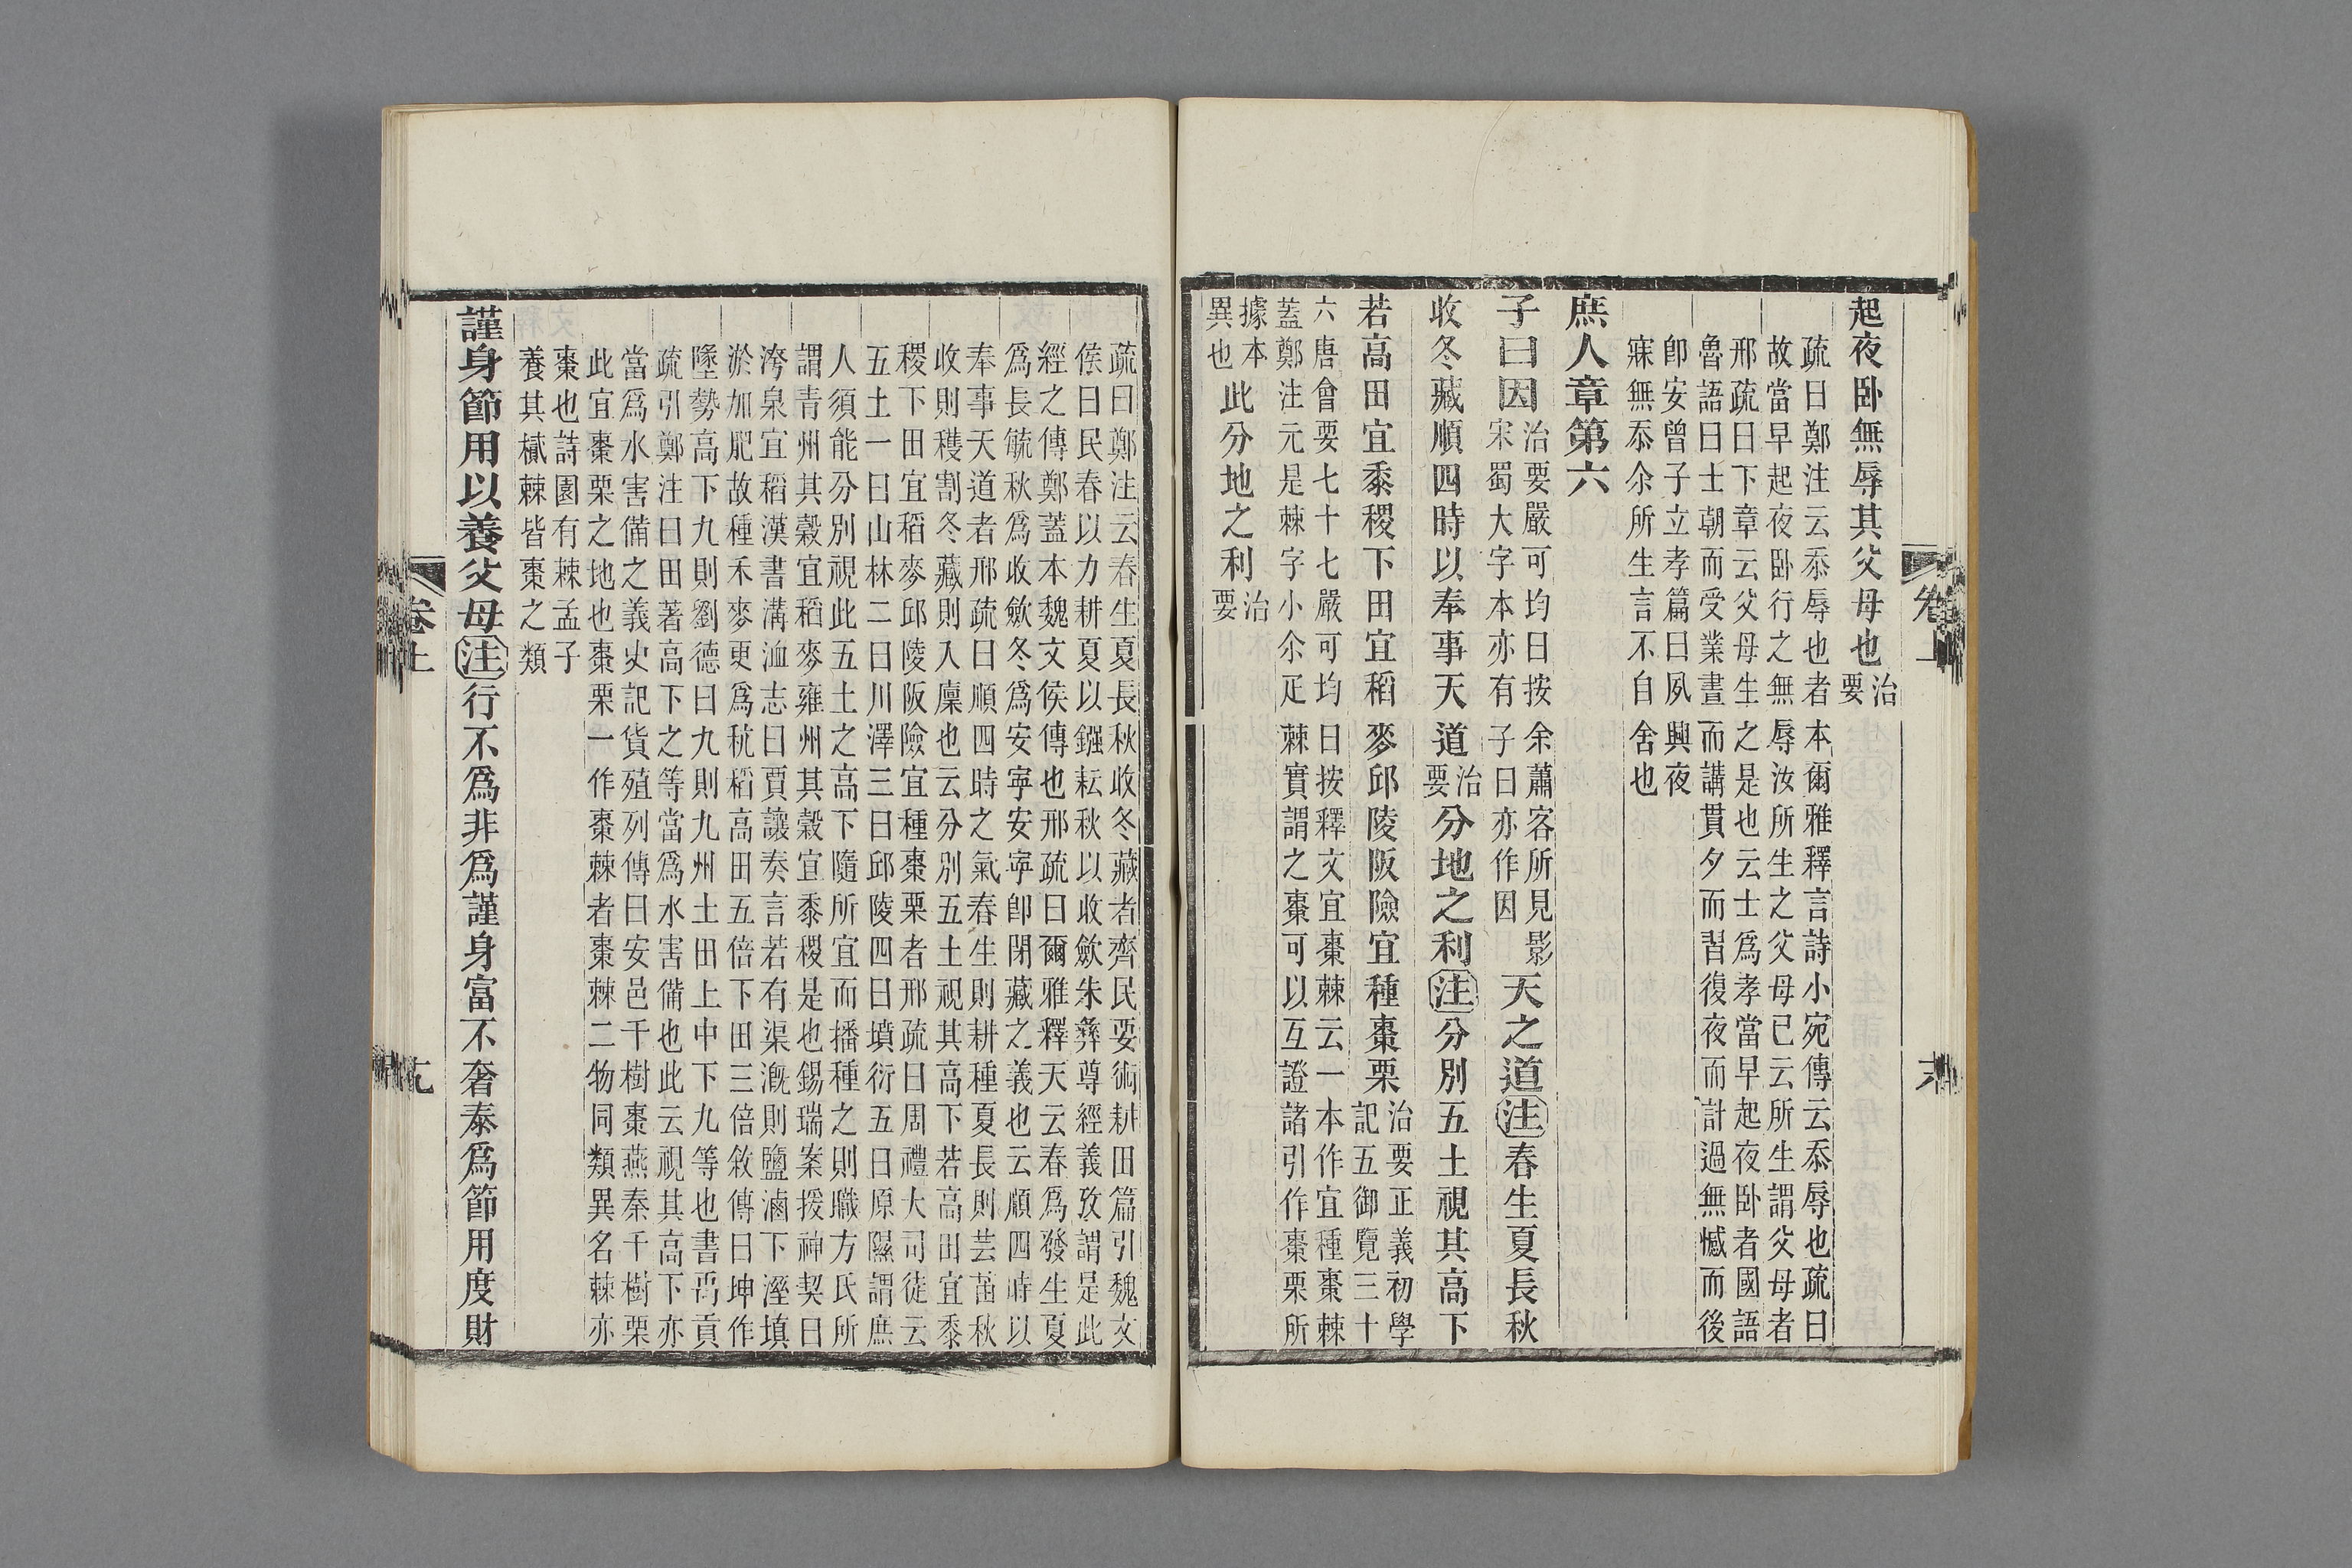 起夜卧無辱其父母也治要
疏曰鄭注云忝辱也者本爾雅釋言詩小宛傳云忝辱也疏曰
故當早起夜卧行之無辱汝所生之父母已云所生謂父母者
邢疏曰下章云父母生之是也云士爲孝當早起夜卧者國語
魯語曰士朝而受業晝而講貫夕而習復夜而計過無憾而後
卽安曾子立孝篇曰夙興夜
寐無忝尒所生言不自舍也
庶人章第六
子曰因治要嚴可均曰按余蕭客所見影宋蜀大字本亦有子曰亦作因天之道注春生夏長秋
收冬藏順四時以奉事天道治要分地之利注分別五土視其高下
若高田宜黍稷下田宜稻麥邱陵阪險宜種棗栗治要正義初學記五御覽三十
六唐會要七十七嚴可均曰按釋文宜棗棘云一本作宜種棗棘
蓋鄭注元是棘字小尒疋棘實謂之棗可以互證諸引作棗栗所
據本異也此分地之利治要
疏曰鄭注云春生夏長秋收冬藏者齊民要術耕田篇引魏文
侯曰民春以力耕夏以鏹耘秋以收斂朱彝尊經義攷謂是此
經之傳鄭蓋本魏文侯傳也邢疏曰爾雅釋天云春爲發生夏
爲長毓秋爲收斂冬爲安寧安寧卽閉藏之義也云順四時以
奉事天道者邢疏曰順四時之氣春生則耕種夏長則芸苗秋
收則穫割冬藏則入廩也云分別五土視其高下若高田宜黍
稷下田宜稻麥邱陵阪險宜種棗栗者邢疏曰周禮大司徒云
五土一曰山林二曰川澤三曰邱陵四曰墳衍五曰原隰謂庶
人須能分別視此五土之高下隨所宜而播種之則職方氏所
謂青州其穀宜稻麥雍州其穀宜黍稷是也錫瑞案援神契曰
洿泉宜稻漢書溝洫志曰賈讓奏言若有渠漑則鹽滷下溼塡
淤加肥故種禾麥更爲秔稻高田五倍下田三倍敘傳曰坤作
墬勢高下九則劉德曰九則九州土田上中下九等也書禹貢
疏引鄭注曰田著高下之等當爲水害備也此云視其高下亦
當爲水害備之義史記貨殖列傳曰安邑千樹棗燕秦千樹栗
此宜棗栗之地也棗栗一作棗棘者棗棘二物同類異名棘亦
棗也詩園有棘孟子
養其樲棘皆棗之類
謹身節用以養父母注行不爲非爲謹身富不奢泰爲節用度財
卷上